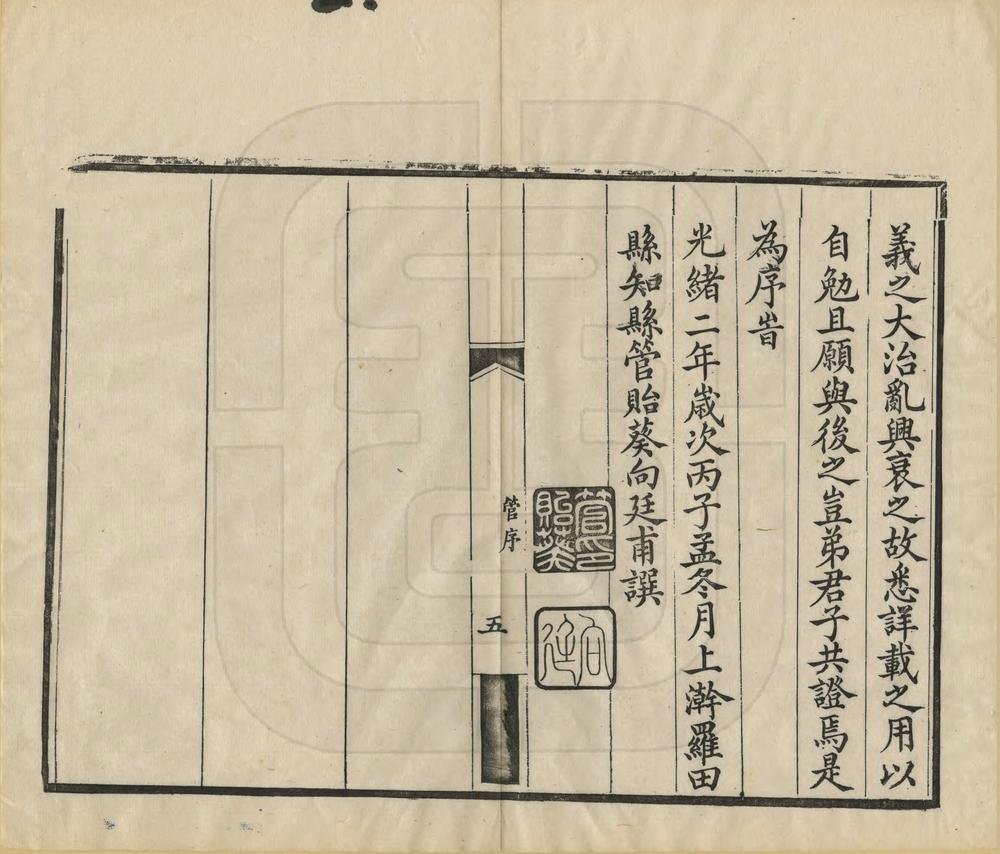 義之大治亂興衰之故悉詳載之用以
自勉且願與後之豈弟君子共證焉是
為序旹
光緒二年歲次丙子孟冬月上澣羅田
縣知縣管貽葵向廷甫譔
管印貽葵
向廷
管序
五